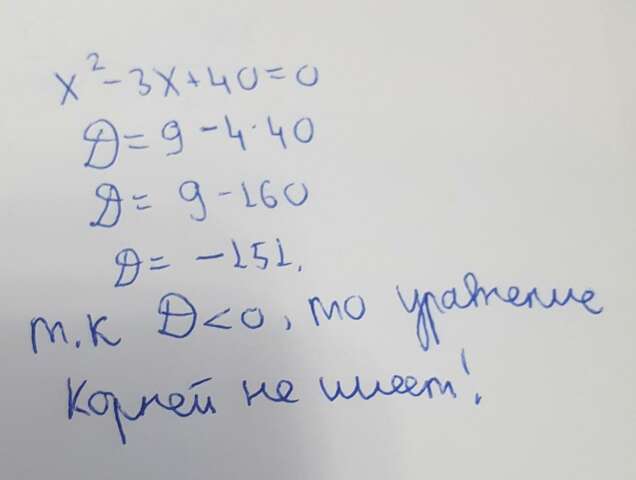 x² - 3x + 40 = 0
D = 9 - 4·40
D = 9 - 160
D = -151.
т.к D < 0, то уравнение
корней не имеет!